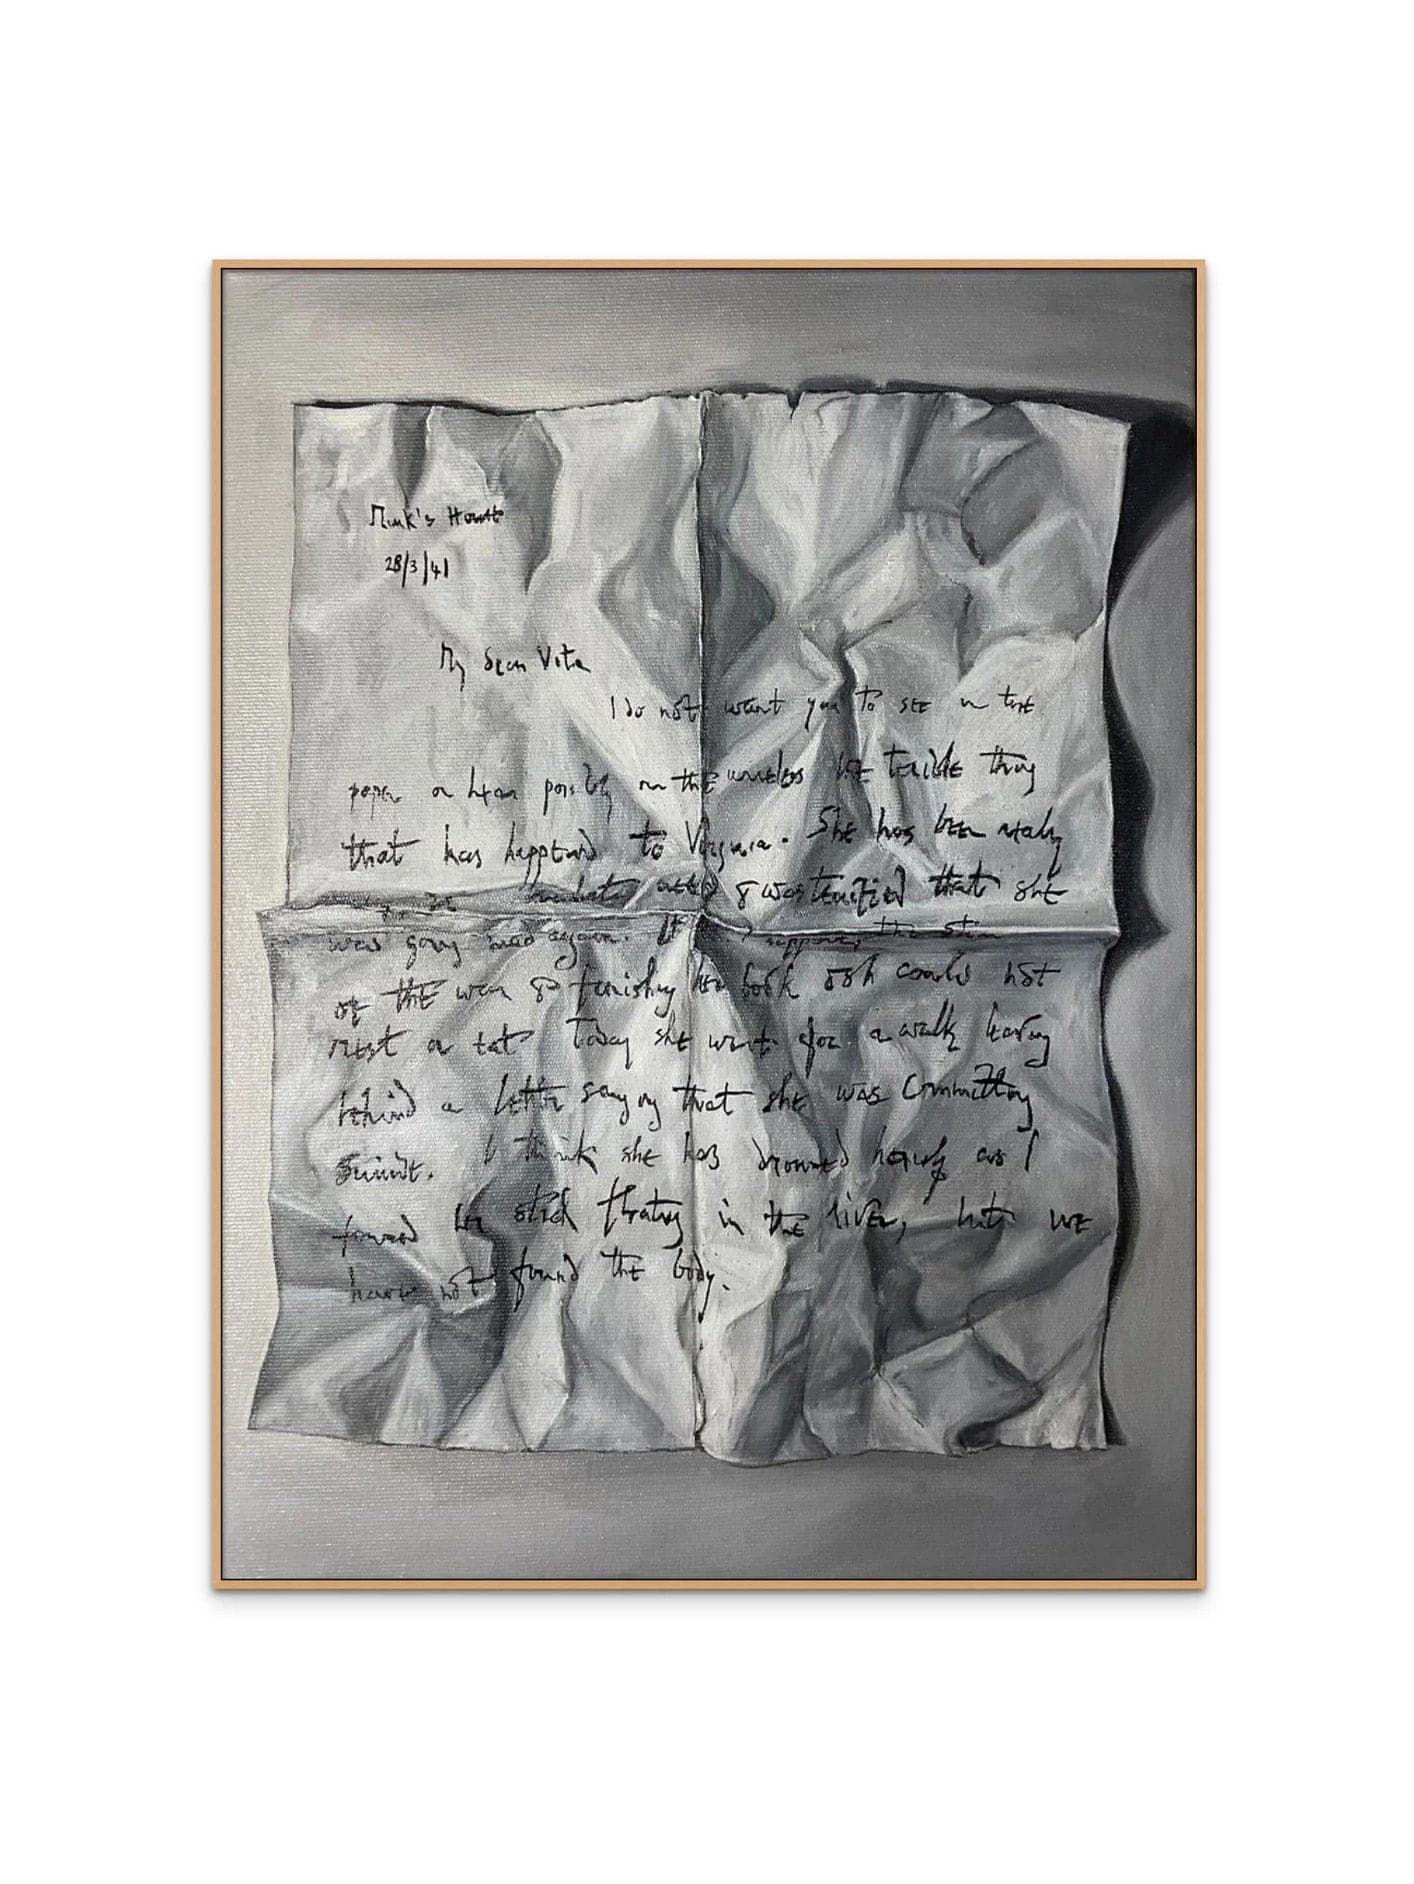 Monk's House
28/3/41
My dear Vita
I do not want you to see in the
paper or hear possibly on the wireless the terrible thing
that has happened to Virginia. She has been really
these last days & was terrified that she
was going mad again. It I suppose, the strain
of the war & finishing her book & she could not
rest or eat Today she went for a walk leaving
behind a letter saying that she was committing
suicide. I think she has drowned herself as I
found her stick floating in the river, but we
have not found the body.